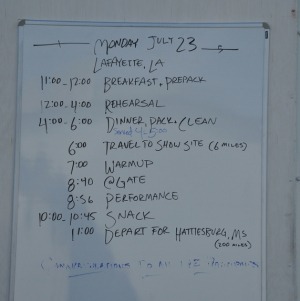 MONDAY JULY 23
LAFAYETTE, LA
11:00-12:00 BREAKFAST, PREPACK
12:00-4:00 REHEARSAL
4:00-6:00 DINNER, PACK, CLEAN
6:00 TRAVEL TO SHOW SITE (6 MILES)
7:00 WARMUP
8:40 @ GATE
8:56 PERFORMANCE
10:00-10:45 SNACK
11:00 DEPART FOR HATTIESBURG, MS
(200 MILES)
CONGRATULATIONS TO ALL THE